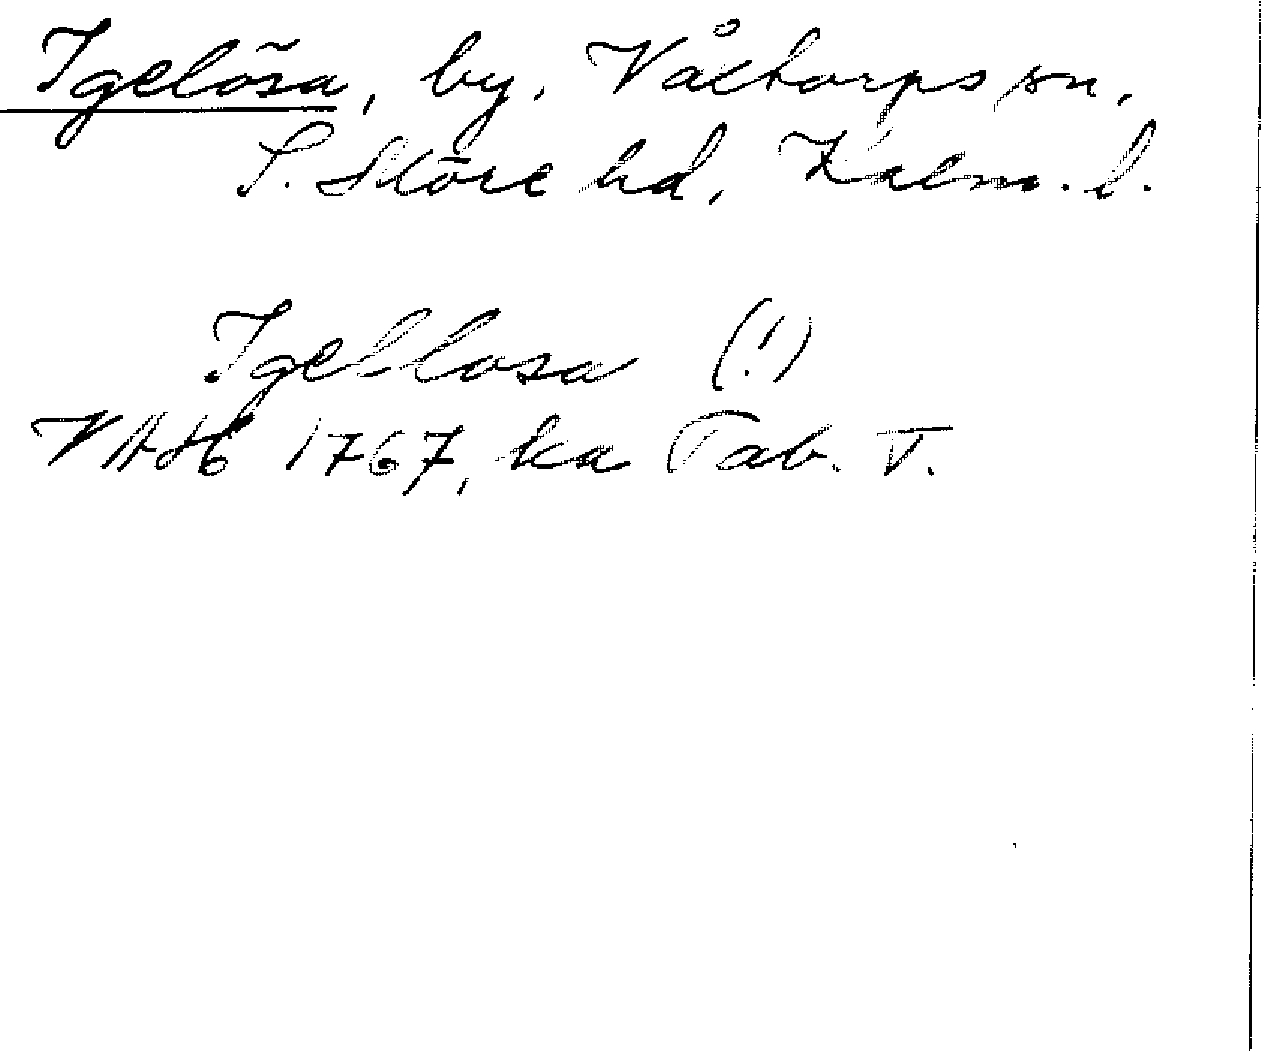 Igelösa, by. Våktorps sn.
S. Möre hd, Kalm. l.
Igellosa (!)
VAH 1767, ka Tab. V.